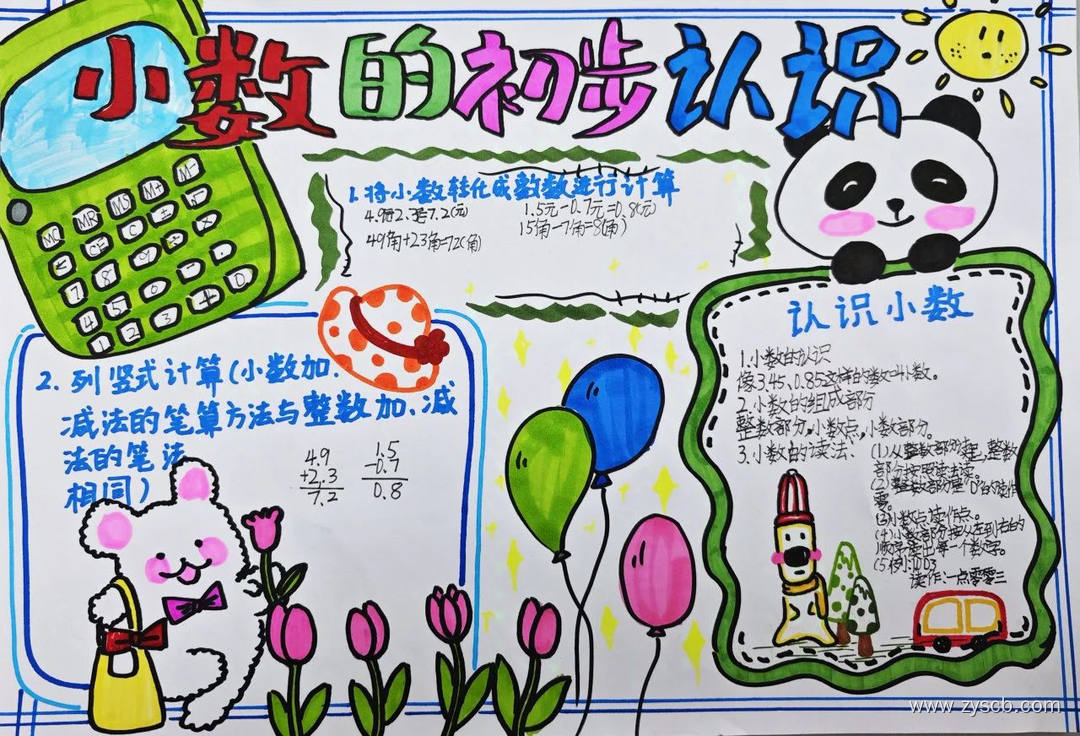 小数的初步认识
MC MR MS M+ M-
← CE C ± √
7 8 9
4 5 6
1 2 3 + 0
1.将小数转化成数数进行计算
1.5元-0.7元=0.8(元)
49角+23角=72(角)
15角-7角=8(角)
2.列竖式计算(小数加.
减法的笔算方法与整数加.减
法的笔法
相同)
4.9
+2.3
7.2
1.5
-0.7
0.8
认识小数
1.小数的认识
像3.45、0.85这样的数叫小数。
2.小数的组成部分
整数部分,小数点,小数部分。
3.小数的读法:
(1)从整数部分读起,整数
部分按照读法读。
(2)整数部分是"0"的读作
零。
(3)小数点读作点。
(4)小数部分按从左到右的
顺序读出每一个数字。
读作:一点零零三
www.zyscb.com